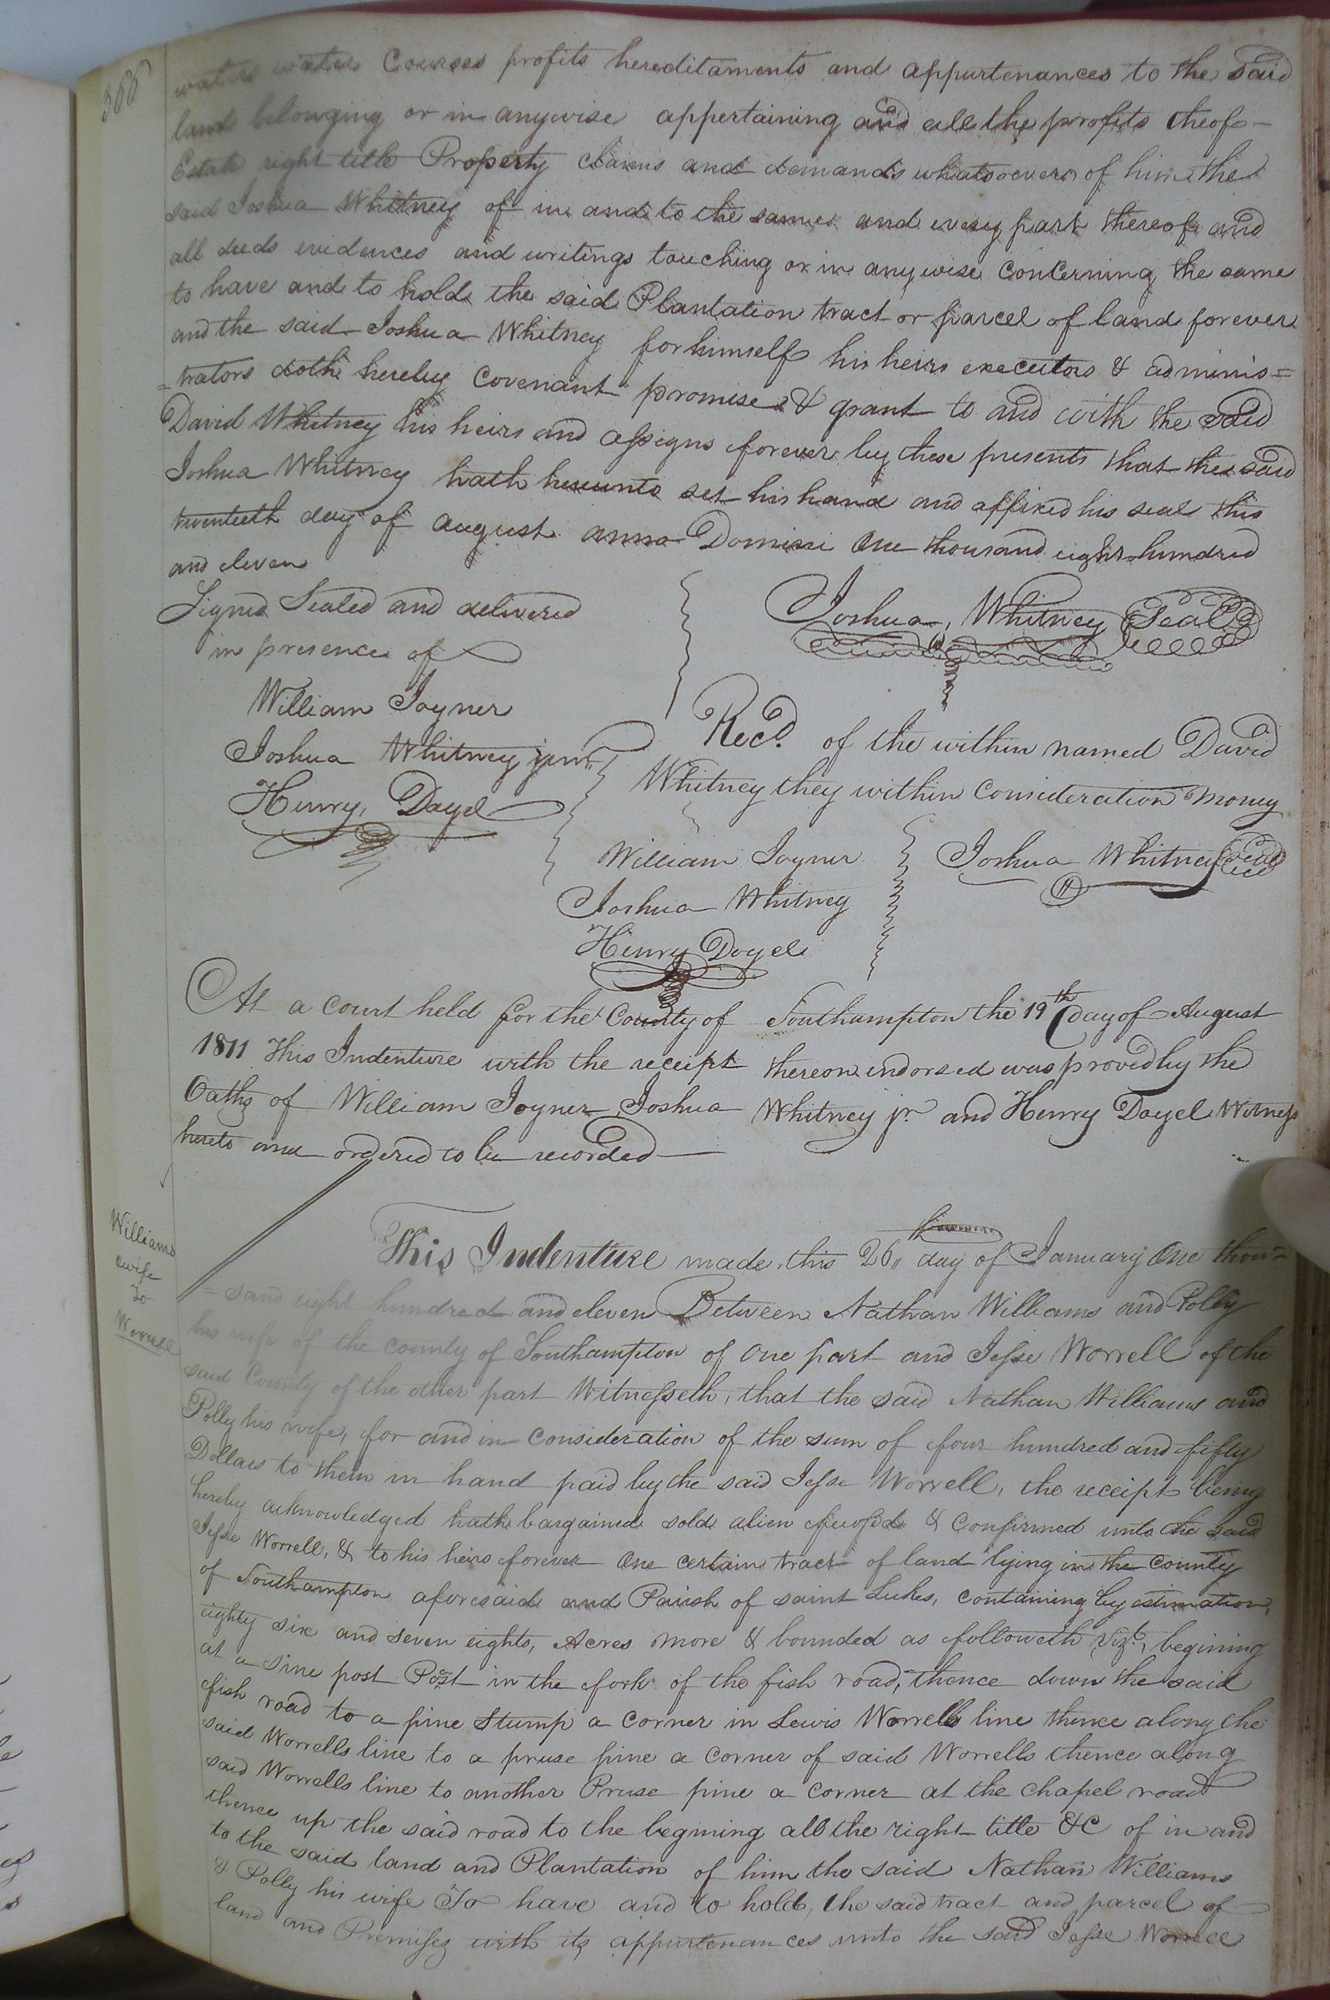 366
waters water Courses profits hereditaments and appurtenances to the said
land belonging or in anywise appertaining and all the profits theof
Estate right title Property claims and demands whatsoever of him the
said Joshua Whitney of in and to the same and every part thereof and
all deeds evidences and writings touching or in any wise concerning the same
to have and to hold the said Plantation tract or parcel of land forever
and the said Joshua Whitney for himself his heirs executors & adminis=
=trators doth hereby covenant promise & grant to and with the said
David Whitney his heirs and assigns forever by these presents that the said
Joshua Whitney hath hereunto set his hand and affixed his seal this
twentieth day of august anno Domini One thousand eight hundred
and eleven
Signed Sealed and delivered
in presence of
Joshua Whitney Seal
William Joyner
Joshua Whitney junr
Henry Doyel
Recd. of the within named David
Whitney they within Consideration Money
William Joyner
Joshua Whitney
Henry Doyel
Joshua Whitney Seal
At a Court held for the County of Southampton the 19th day of August
1811 This Indenture with the receipt thereon indorsed was proved by the
Oaths of William Joyner Joshua Whitney jr. and Henry Doyel Witness
hereto and ordered to be recorded
Williams
& wife
To
Worrell
This Indenture made this 26 day of January One thou=
=sand eight hundred and eleven Between Nathan Williams and Polly
his wife of the county of Southampton of One part and Jesse Worrell of the
said County of the other part Witnesseth, that the said Nathan Williams and
Polly his wife, for and in consideration of the sum of four hundred and fifty
Dollars to them in hand paid by the said Jesse Worrell, the receipt being
hereby acknowledged hath bargained sold alien & Confirmed unto the said
Jesse Worrell, & to his heirs forever One certain tract of land lying in the county
of Southampton aforesaid and Parish of saint Lukes, containing by estimation,
eighty six and seven eights, Acres more & bounded as followeth Vizt, begining
at a sine post Post in the fork of the fish road, thence down the said
fish road to a pine Stump a corner in Lewis Worrells line thence along the
said Worrells line to a pruse pine a corner of said Worrells thence along
said Worrells line to another Pruse pine a corner at the chapel road
thence up the said road to the begining all the right title &C of in and
to the said land and Plantation of him the said Nathan Williams
& Polly his wife To have and to hold, the said tract and parcel of
land and Premises with its appurtenances unto the said Jesse Worrell